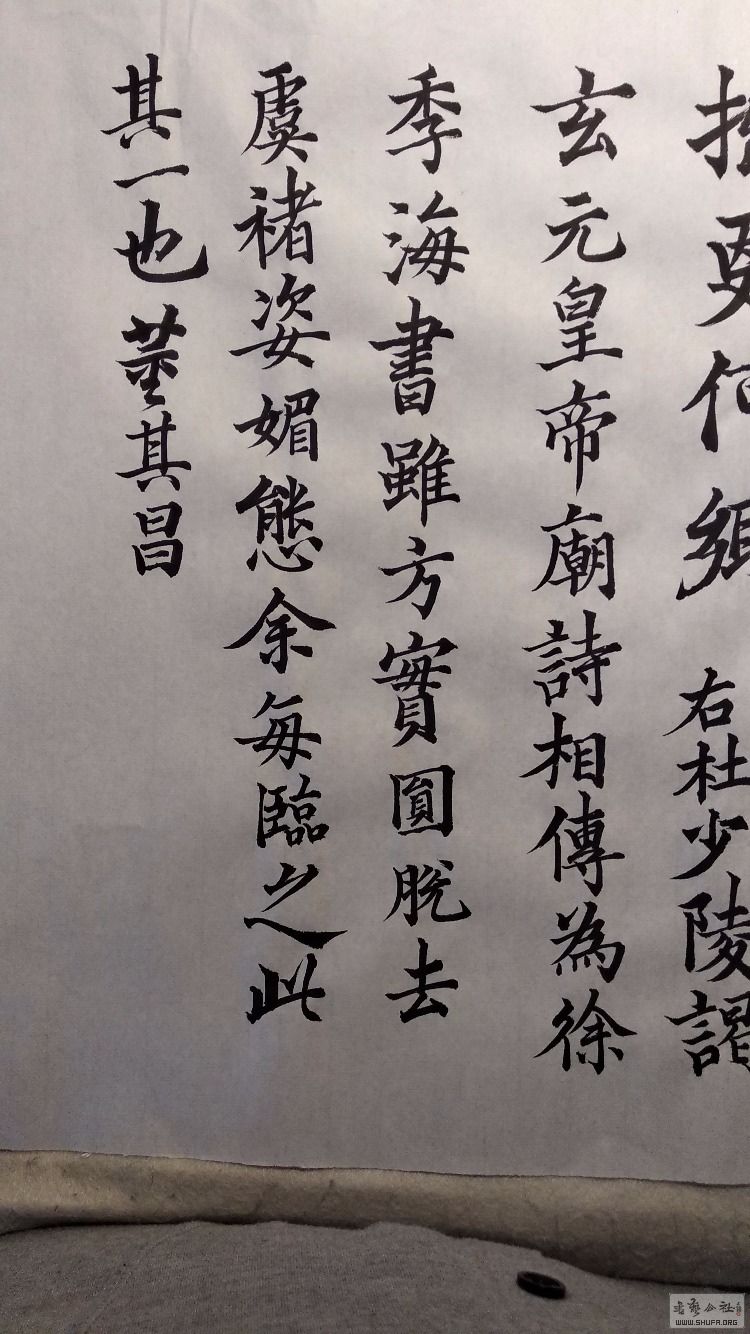 拙更何鄉 右杜少陵謁
玄元皇帝廟詩相傳為徐
季海書雖方實圓脫去
虞褚姿媚態余每臨之此
其一也 董其昌
书艺公社
WWW.SHUFA.ORG